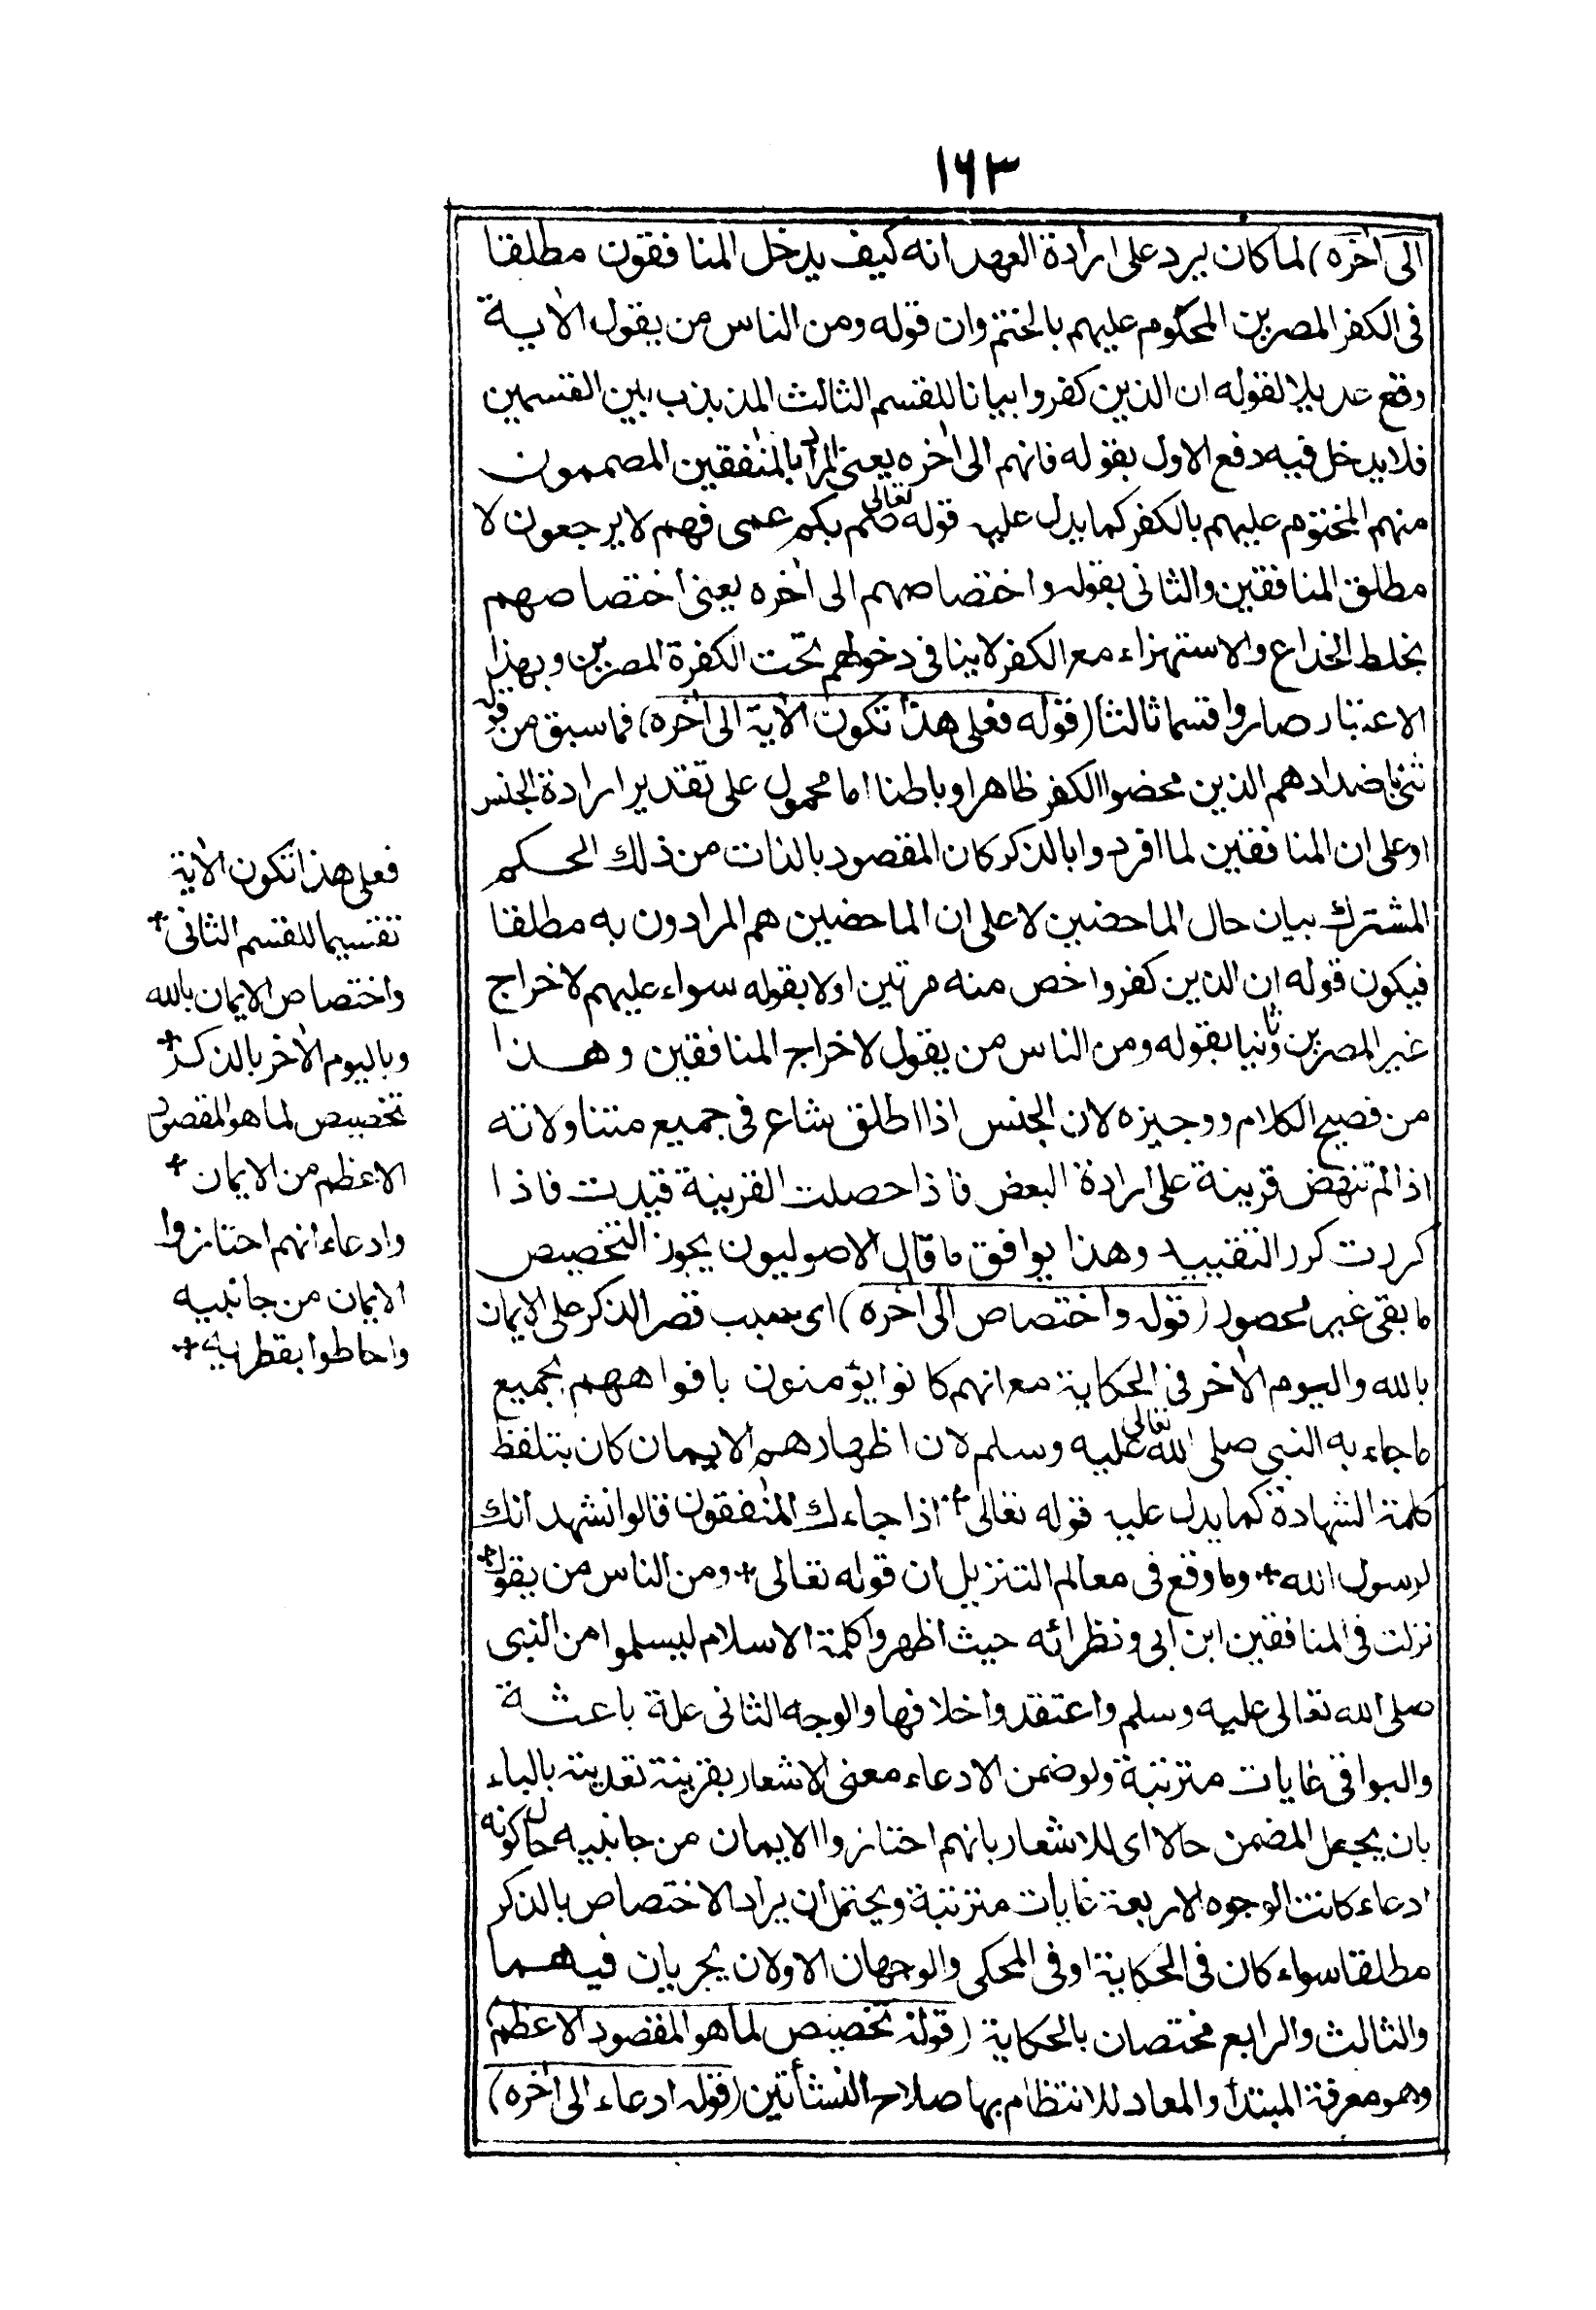 ١٦٣
الى أخره) لما كان يرد على ارادة العهد انه كيف يدخل المنافقون مطلقا
فى الكفر المصرين المحكوم عليهم بالختم وان قوله ومن الناس من يقول الاٰية
وقع عديلا لقوله ان الذين كفروا بيانا للقسم الثالث المذبذب بين القسمين
فلا يدخل فيه دفع الاول بقوله فانهم الى اٰخره يعنى المراد بالمنٰفقين المصممون
منهم المختوم عليهم بالكفر كما يدل عليه قوله تعالى صم بكم عمى فهم لا يرجعون لا
مطلق المنافقين والثانى بقوله واختصاصهم الى اٰخره يعنى اختصاصهم
بخلط الخداع والاستهزاء مع الكفر لا ينافى دخولهم تحت الكفرة المصرين وبهذا
الاعتبار صاروا قسما ثالثا (قوله فعلى هذا تكون الاٰية الى اٰخره) فما سبق من قوله
ثنى باضدادهم الذين محضوا الكفر ظاهرا وباطنا اما محمول على تقدير ارادة الجنس
او على ان المنافقين لما افردوا بالذكر كان المقصود بالذات من ذلك الحكم
المشترك بيان حال الماحضين لا على ان الماحضين هم المرادون به مطلقا
فيكون قوله ان الذين كفروا خص منه مرتين اولا بقوله سواء عليهم لاخراج
غير المصرين وثانيا بقوله ومن الناس من يقول لاخراج المنافقين وهذا
من فصيح الكلام ووجيزه لان الجنس اذا اطلق شاع فى جميع متناولاته
اذا لم تنهض قرينة على ارادة البعض فاذا حصلت القرينة قيدت فاذا
كررت كرر التقييد وهذا يوافق ما قال الاصوليون يجوز التخصيص
ما بقى غير محصور (قوله واختصاص الى اٰخره) اى سبب قصر الذكر على الايمان
بالله واليوم الاٰخر فى الحكاية مع انهم كانوا يؤمنون بافواههم بجميع
ما جاء به النبى صلى الله تعالى عليه وسلم لان اظهارهم الايمان كان بتلفظ
كلمة الشهادة كما يدل عليه قوله تعالى * اذا جاءك المنٰفقون قالوا نشهد انك
لرسول الله * وما وقع فى معالم التنزيل ان قوله تعالى * ومن الناس من يقول *
نزلت فى المنافقين ابن ابى ونظرائه حيث اظهروا كلمة الاسلام ليسلموا من النبى
صلى الله تعالى عليه وسلم واعتقدوا خلافها والوجه الثانى علة باعثة
والبواقى غايات مترتبة ولو ضمن الادعاء معنى الاشعار بقرينة تعديته بالباء
بان يجعل المضمن حالا اى للاشعار بانهم احتازوا الايمان من جانبيه حال كونه
ادعاء كانت الوجوه الاربعة غايات مترتبة ويحتمل ان يراد الاختصاص بالذكر
مطلقا سواء كان فى الحكاية او فى المحكى والوجهان الاولان يجريان فيهما
والثالث والرابع مختصان بالحكاية (قوله تخصيص لما هو المقصود الاعظم)
وهو معرفة المبتدأ والمعاد للانتظام بها صلاح النشأتين (قوله ادعاء الى اٰخره)
فعلى هذا تكون الاٰية
تقسيما للقسم الثانى *
واختصاص الايمان بالله
وباليوم الاٰخر بالذكر *
تخصيص لما هو المقصود
الاعظم من الايمان *
وادعاء انهم احتازوا
الايمان من جانبيه
واحاطوا بقطريه *